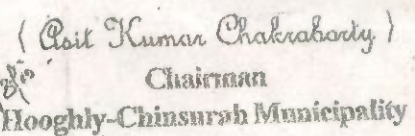 ( Asit Kumar Chakraborty )
Chairman
Hooghly-Chinsurah Municipality